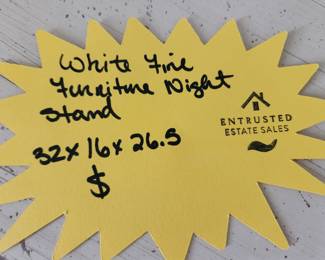 White Fine
Furniture Night
Stand
32x16x26.5
$
ENTRUSTED
ESTATE SALES